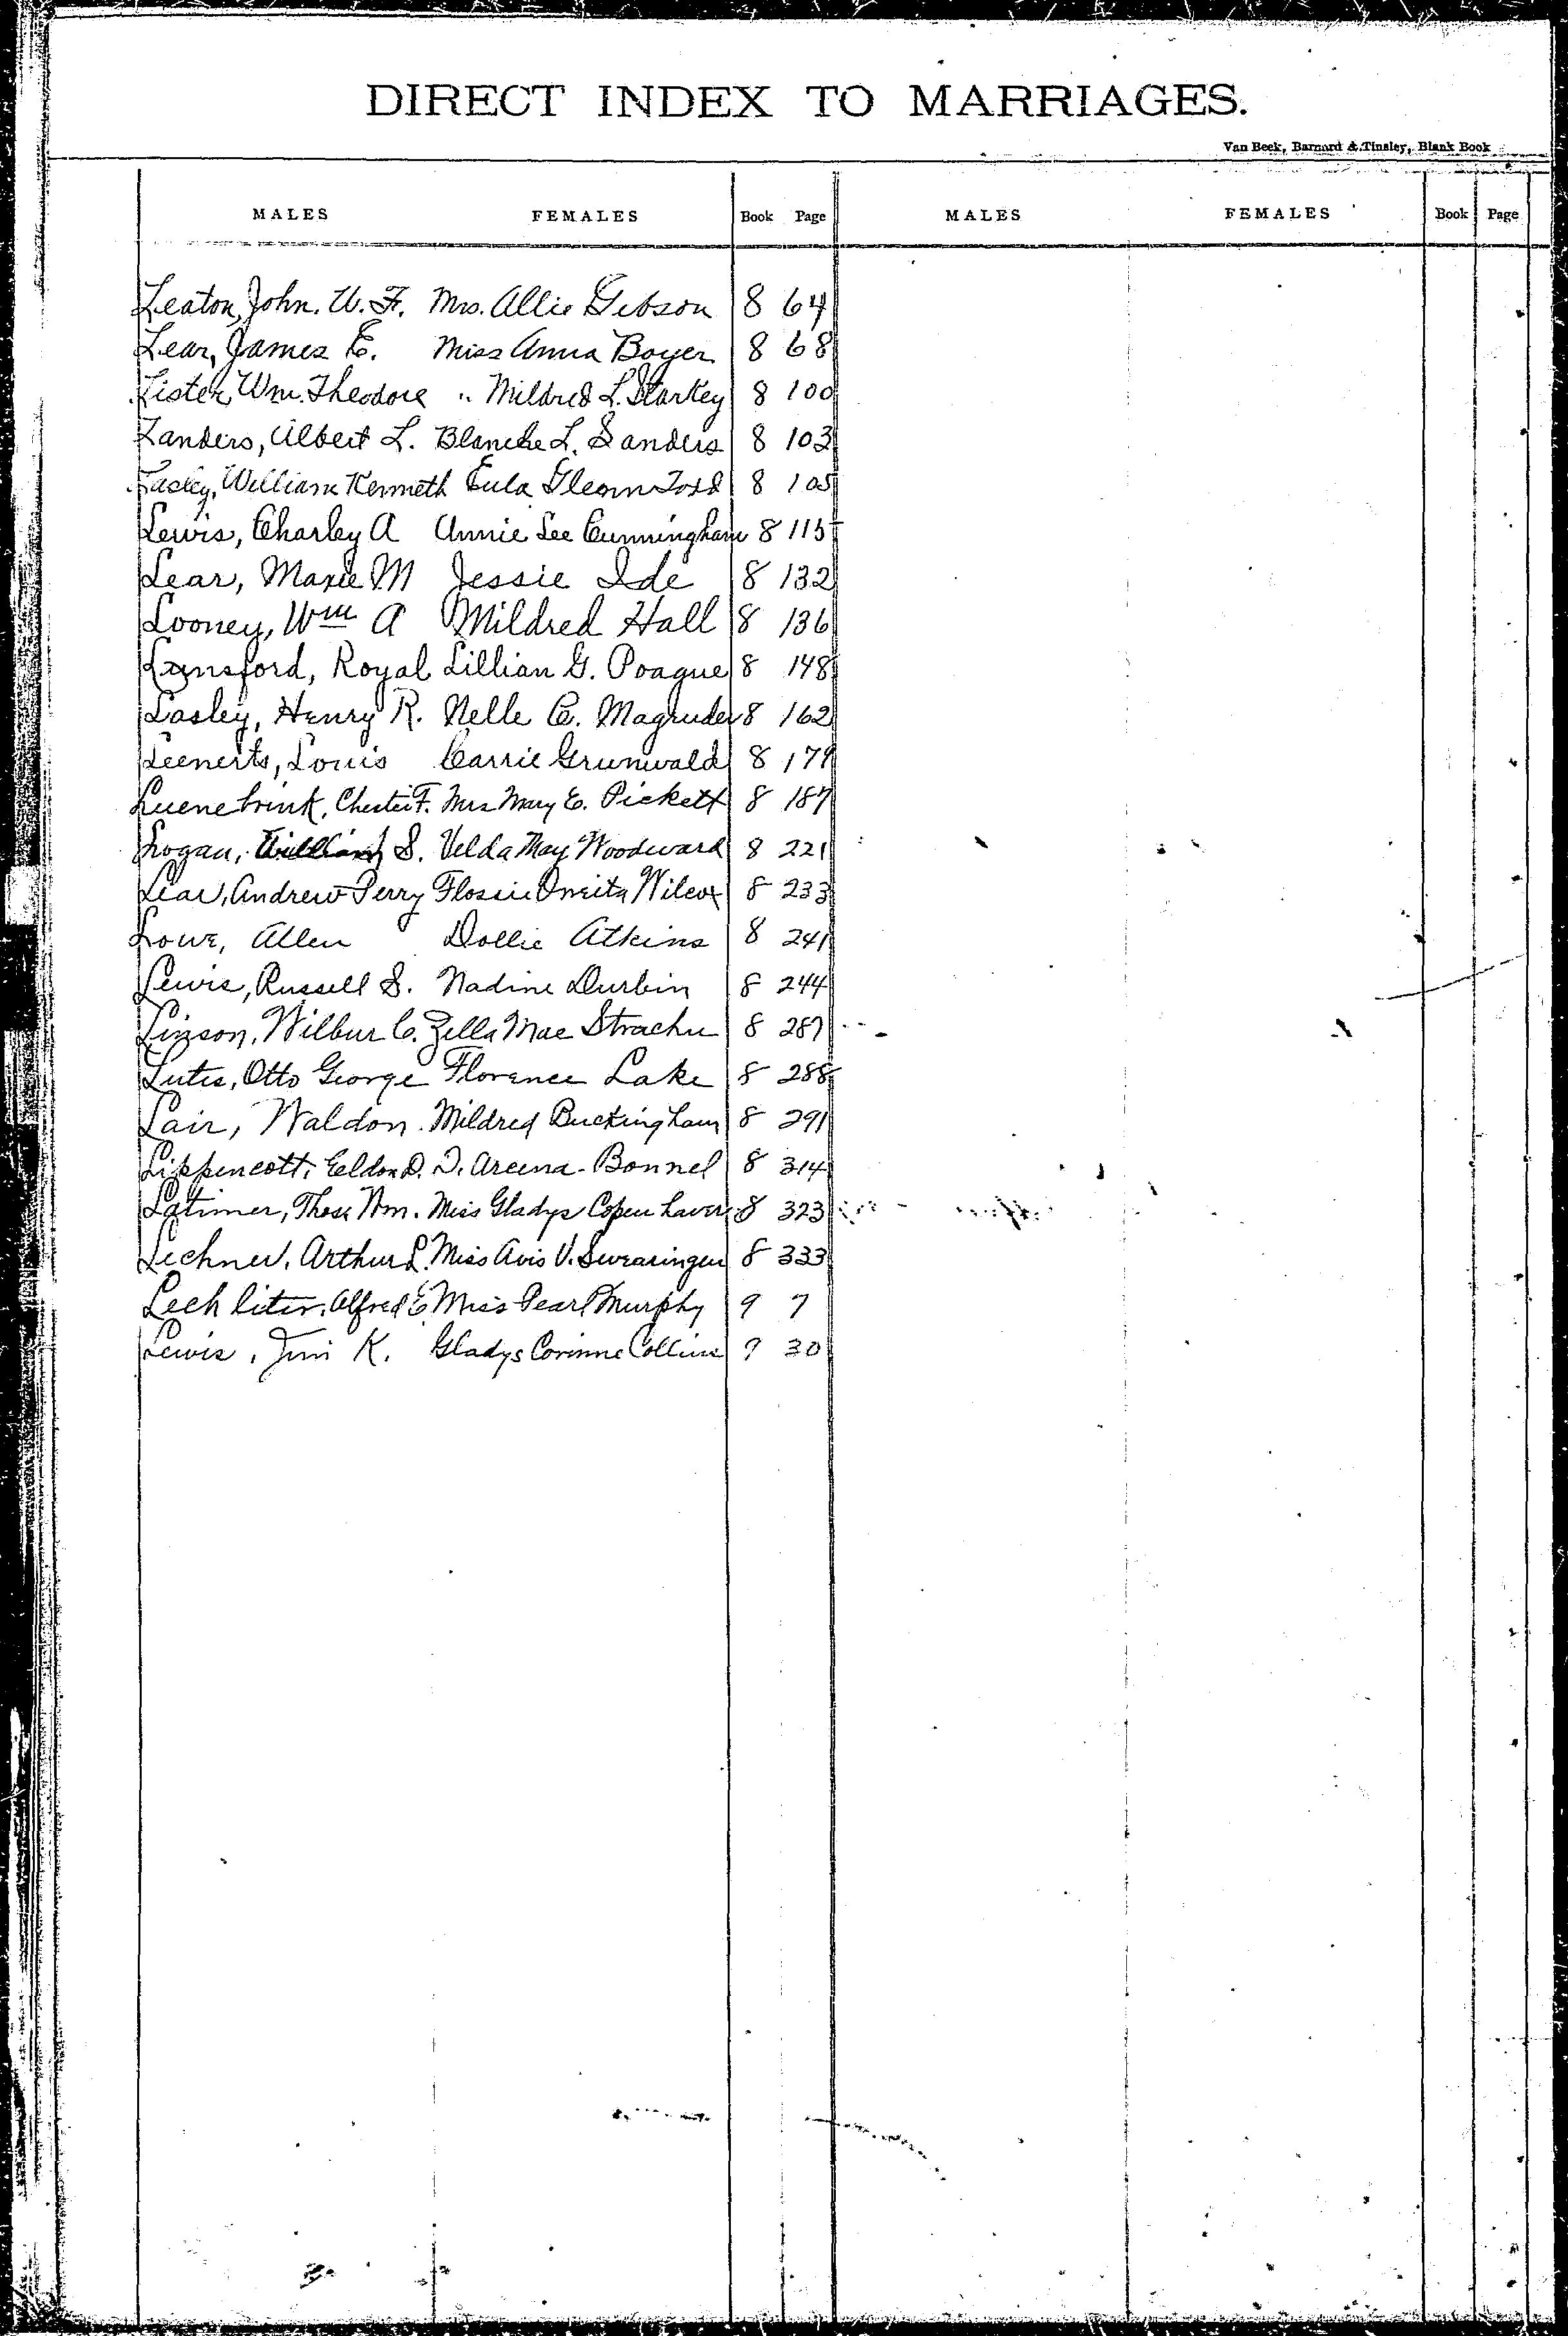 DIRECT INDEX TO MARRIAGES.
Van Beek, Barnard & Tinsley, Blank Book
MALES FEMALES Book Page MALES FEMALES Book Page
Leaton, John. W. F. Mrs. Allie Gibson 8 64
Lear, James E. Miss Anna Boyer 8 68
Lister, Wm. Theodore " Mildred L. Starkey 8 100
Landers, Albert L. Blanche L. Sanders 8 103
Lasley, William Kenneth Eula Glenn Todd 8 105
Lewis, Charley A Annie Lee Cunningham 8 115
Lear, Maxie M Jessie Ide 8 132
Looney, Wm A Mildred Hall 8 136
Royal Lillian G. Poague 8 148
Lasley, Henry R. Nelle C. Magruder 8 162
Leenerts, Louis Carrie Grunwald 8 179
Luenebrink, Chester F. Mrs Mary E. Pickett 8 187
Logan, William S. Velda May Woodward 8 221
Lear, Andrew Perry Flossie Oneita Wilcox 8 233
Lowe, Allen Dollie Atkins 8 241
Lewis, Russell S. Nadine Durbin 8 244
Linson, Wilbur C. Zella Mae 8 287
Lutes, Otto George Florence Lake 8 288
Lair, Waldon. Mildred Buckingham 8 291
Lippencott, Eeldon D. D. Bonnel 8 314
Latimer, Thos. Wm. Miss Gladys Copenhaver 8 323
Lechner, Arthur L. Miss Avis V. Swearingen 8 333
Lechliter, Alfred E. Miss Pearl Murphy 9 7
Lewis, Jim K. Gladys Corinne Collins 9 30